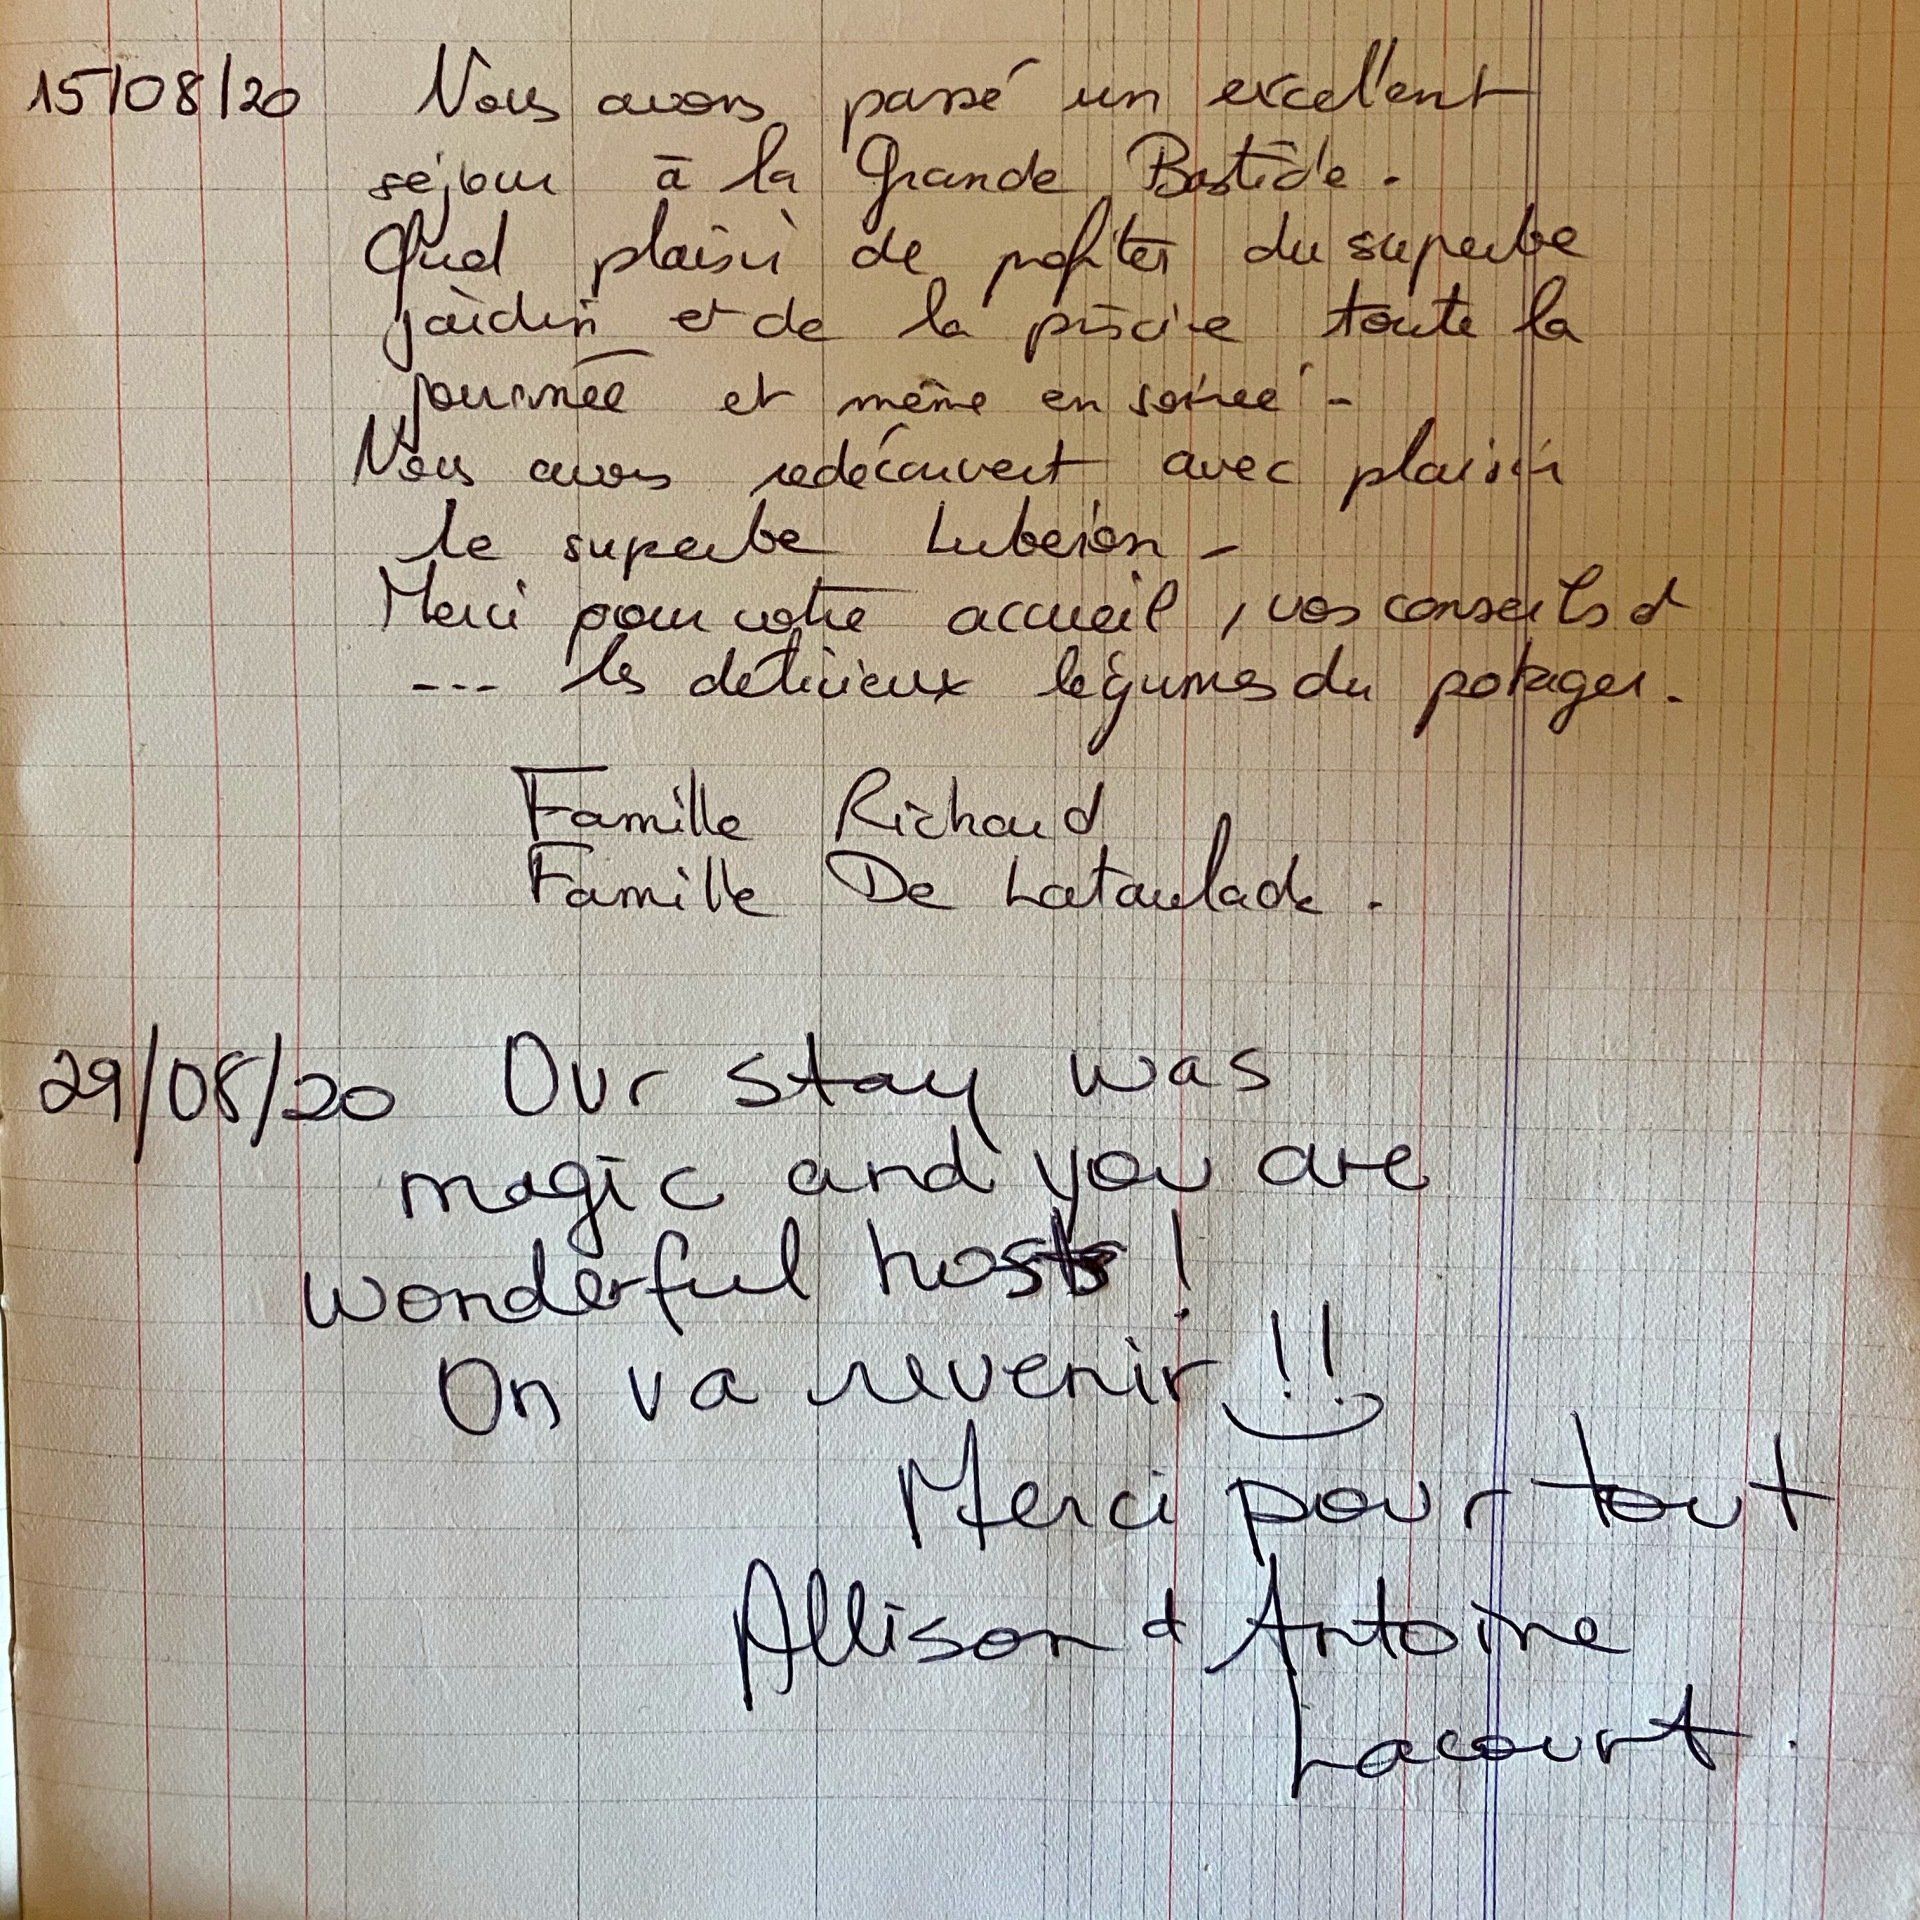 15/08/20 Nous avons passé un excellent
séjour à la Grande Bastide.
Quel plaisir de profiter du superbe
jardin et de la piscine toute la
journée et même en soirée -
Nous avons redécouvert avec plaisir
le superbe Luberon -
Merci pour votre accueil, vos conseils et
--- les délicieux légumes du potager.
Famille Richaud
Famille De Lataulade.
29/08/20 Our stay was
magic and you are
wonderful hosts!
On va revenir!!
Merci pour tout
Allison & Antoine
Lacourt.